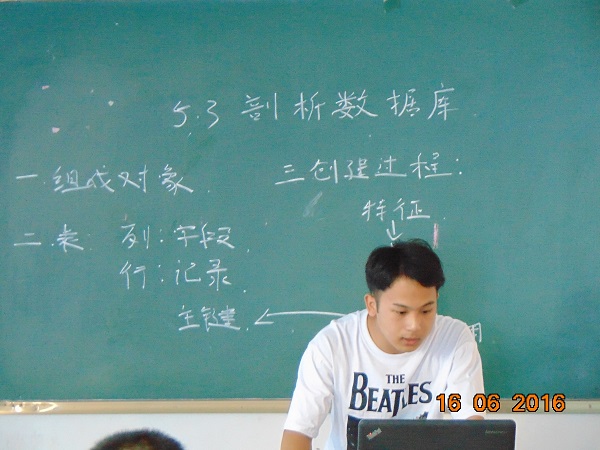 5.3 剖析数据库
一.组成对象
二.表 列:字段
行:记录
主键
三创建过程:
特征
用
THE
BEATLES
16 06 2016
ThinkPad